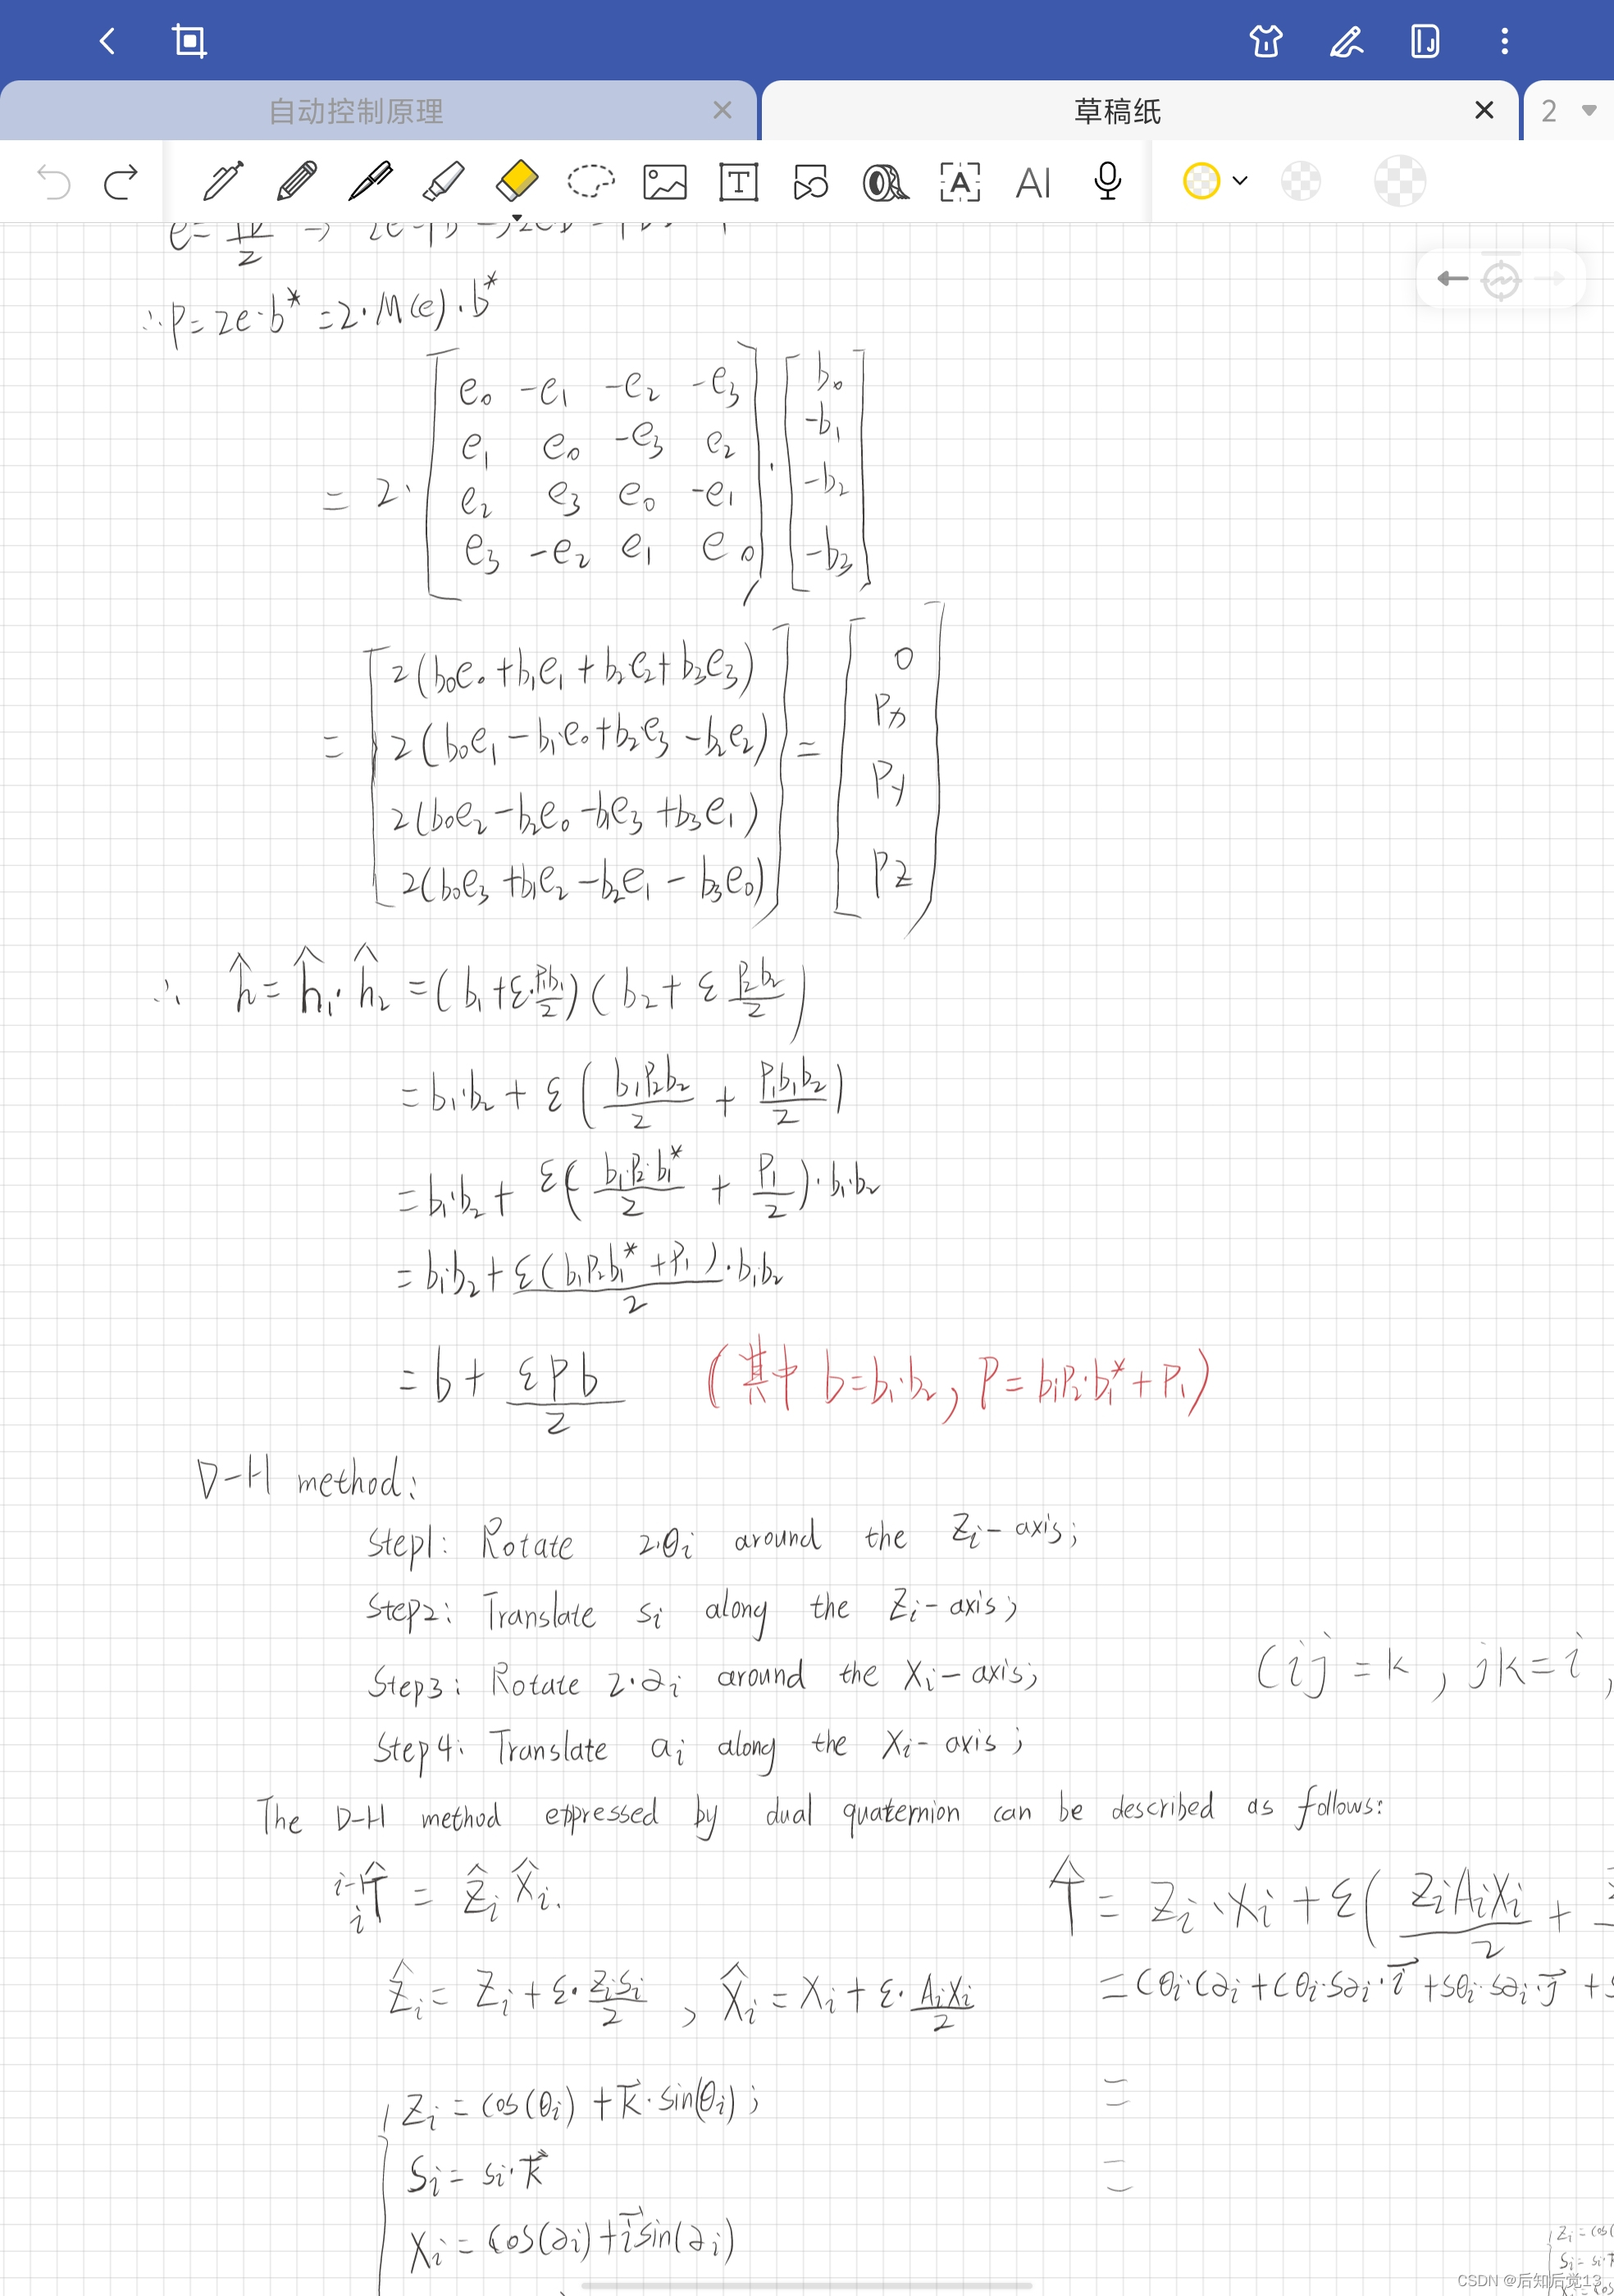 自动控制原理 × 草稿纸 × 2
∴P=2e·b*=2·M(e)·b*
= 2·[e₀ -e₁ -e₂ -e₃] · [b₀]
[e₁ e₀ -e₃ e₂] [-b₁]
[e₂ e₃ e₀ -e₁] [-b₂]
[e₃ -e₂ e₁ e₀] [-b₃]
= [2(b₀e₀+b₁e₁+b₂e₂+b₃e₃)] = [0]
[2(b₀e₁-b₁e₀+b₂e₃-b₂e₂)] [Px]
[2(b₀e₂-b₂e₀-b₁e₃+b₃e₁)] [Py]
[2(b₀e₃+b₁e₂-b₂e₁-b₃e₀)] [Pz]
∴ ĥ=ĥ₁·ĥ₂=(b₁+ε·P₁b₁/2)(b₂+ε P₂b₂/2)
=b₁·b₂+ε(b₁P₂b₂/2+P₁b₁b₂/2)
=b₁·b₂+ε(b₁·P₂·b₁*/2+P₁/2)·b₁·b₂
=b₁·b₂+ε(b₁P₂b₁*+P₁)/2·b₁b₂
=b+εPb/2 (其中 b=b₁·b₂, P=b₁P₂·b₁*+P₁)
D-H method:
Step1: Rotate 2·θi around the Zi-axis;
Step2: Translate si along the Zi-axis;
Step3: Rotate 2·∂i around the Xi-axis;
(ij=k, jk=i,
Step4: Translate ai along the Xi-axis;
The D-H method expressed by dual quaternion can be described as follows:
ⁱ⁻¹ᵢT̂ = Ẑi X̂i.
T̂=Zi·Xi+ε(ZiAiXi/2+
Ẑi=Zi+ε·ZiSi/2, X̂i=Xi+ε·AiXi/2
=Cθi·C∂i+Cθi·S∂i·i⃗+Sθi·S∂i·j⃗+S
Zi=cos(θi)+k⃗·sin(θi);
=
Si=si·k⃗
=
Xi=cos(∂i)+i⃗sin(∂i)
Zi=cos(
Si=si·k⃗
CSDN @后知后觉13